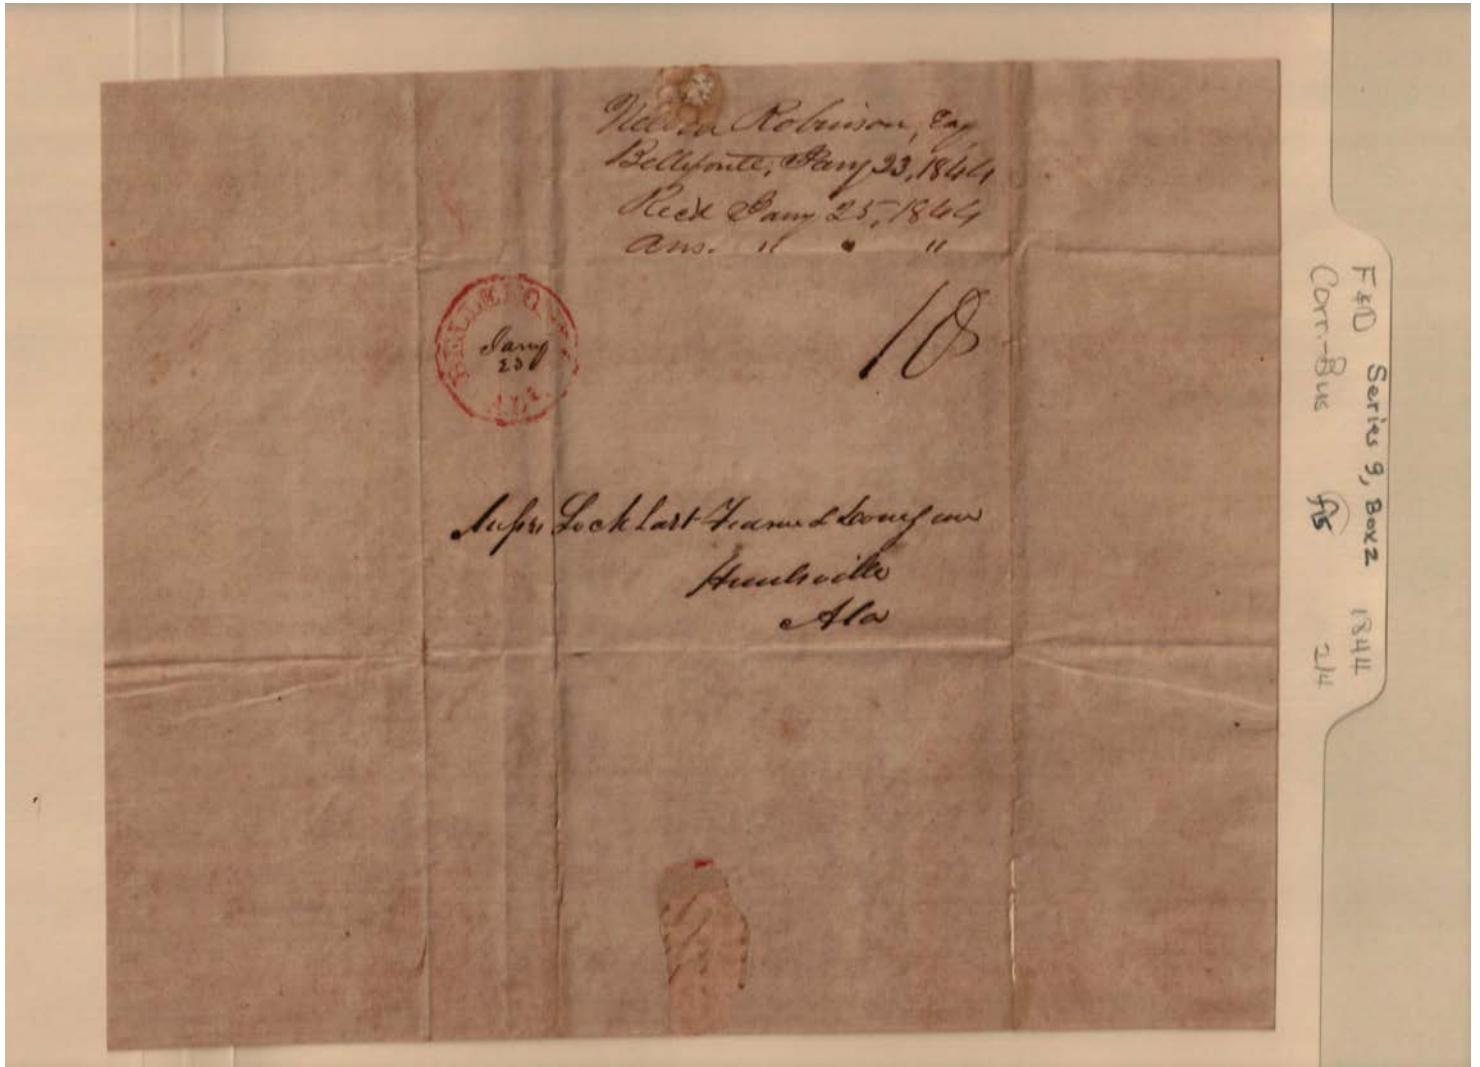 Robinson, Esq
Bellefonte, Jany 23, 1844
Recd Jany 25, 1844
Ans. " " "
BELLEFO
Jany
23
10
Messrs Lockhart Fearn & Donegan
Huntsville
Ala
F&D Series 9, Box 2 1844
Corr.-Bus f15 2/4